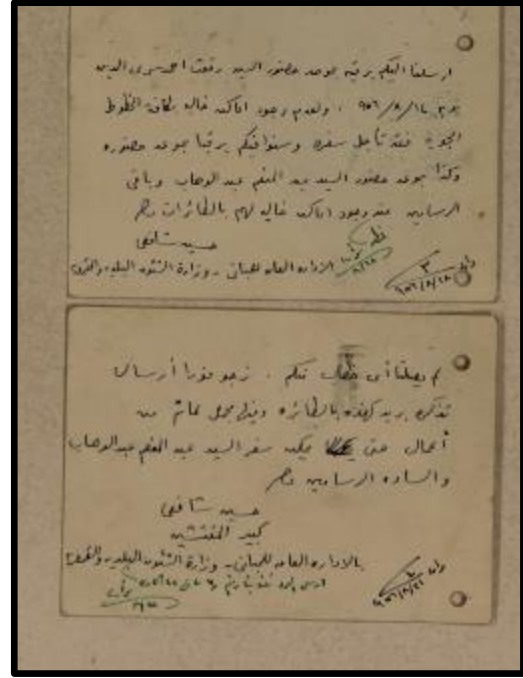 ارسلنا اليكم برقية بموعد حضور السيد رفعت احمد سرى الدين
يوم ١٤/٨/٩٥٦ ، ولعدم وجود اماكن خالية بكافة الخطوط
الجوية فقد تأجل سفره وسنوافيكم برقيا بموعد حضوره
وكذا موعد حضور السيد عبد المنعم عبد الوهاب وباقى
الرسامين عند وجود اماكن خالية لهم بالطائرات
حسين شافعى
الاداره العامه للمبانى - وزارة الشئون البلديه والقرويه
لم يصلنا أى خطاب منكم . نرجو فورا أرسال
تذكره بريد كهذه بالطائره وفيها مجمل ما تم من
أعمال حتى يمكن سفر السيد عبد المنعم عبد الوهاب
والساده الرسامين
حسين شافعى
كبير المفتشين
بالاداره العامه للمبانى - وزارة الشئون البلديه والقرويه